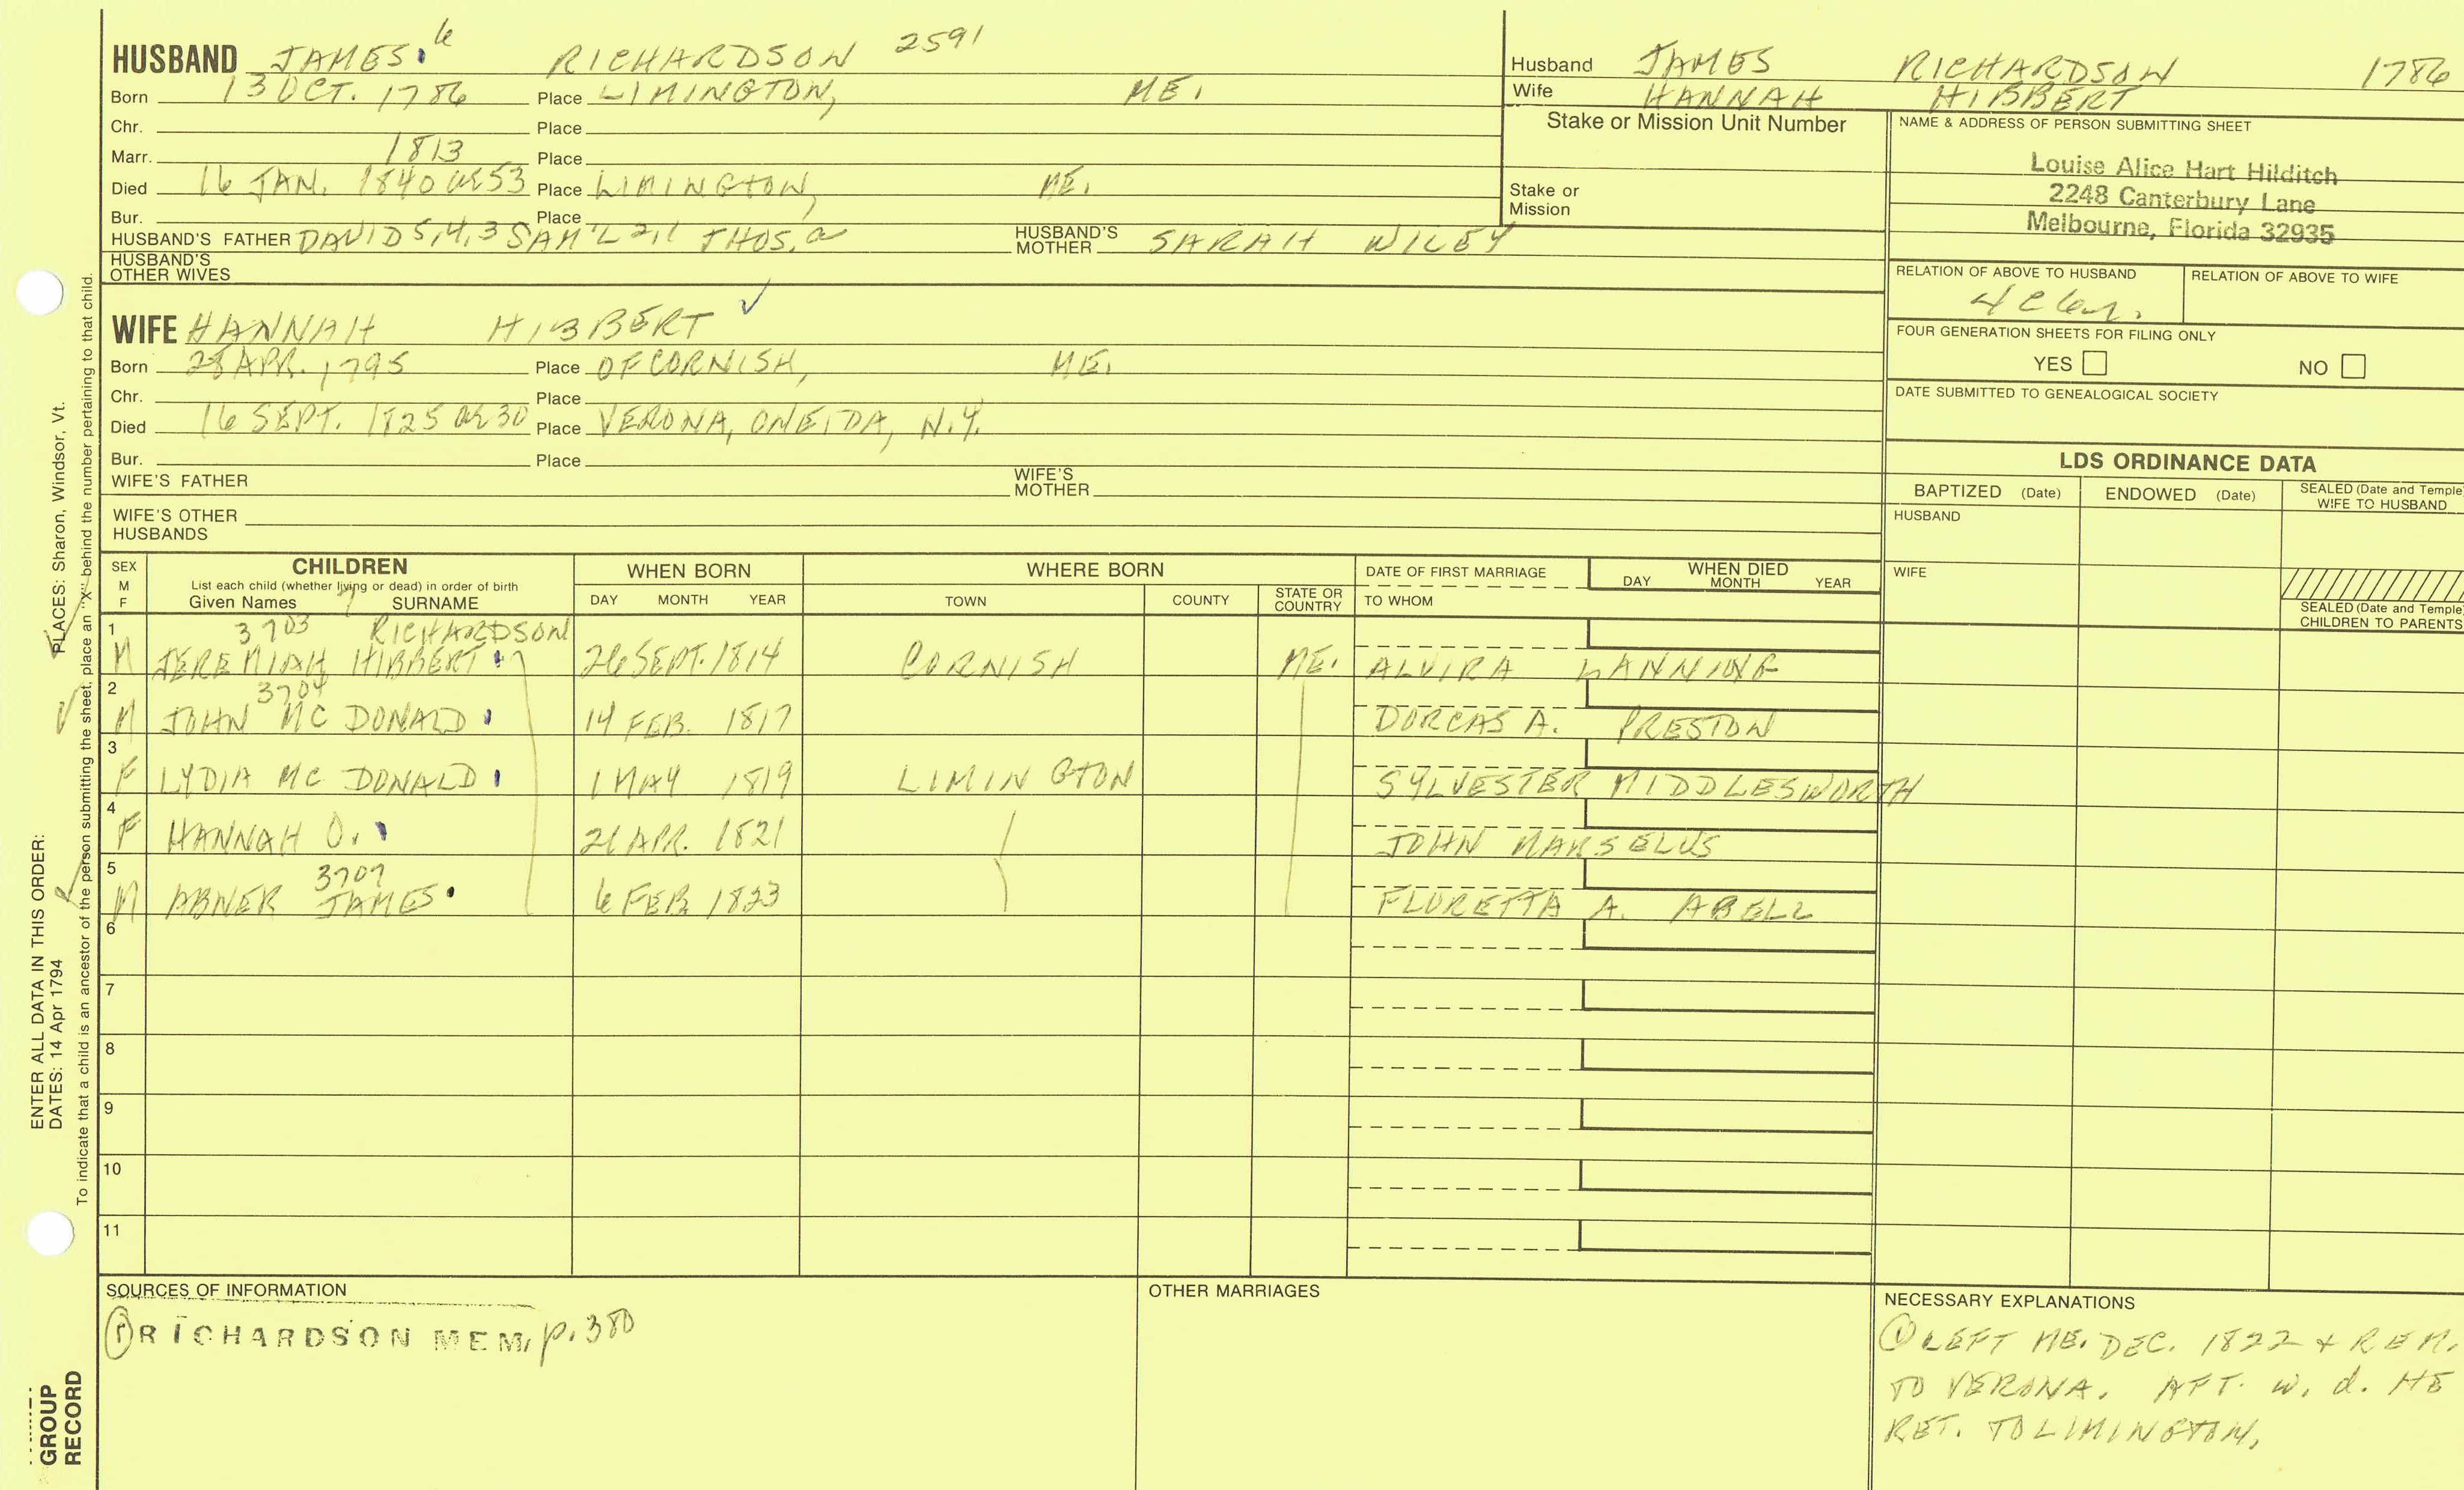 HUSBAND JAMES 6 RICHARDSON 2591
Born 13 OCT. 1786 Place LIMINGTON, ME.
Chr. Place
Marr. 1813 Place
Died 16 JAN. 1840 ae 53 Place LIMINGTON, ME.
Bur. Place
HUSBAND'S FATHER DAVID 5,4,3 SAM'L 2,1 THOS. a HUSBAND'S MOTHER SARAH WILEY
HUSBAND'S OTHER WIVES
WIFE HANNAH HIBBERT ✓
Born 28 APR. 1795 Place OF CORNISH, ME.
Chr. Place
Died 16 SEPT. 1825 ae 30 Place VERONA, ONEIDA, N.Y.
Bur. Place
WIFE'S FATHER WIFE'S MOTHER
WIFE'S OTHER HUSBANDS
Husband JAMES RICHARDSON 1786
Wife HANNAH HIBBERT
Stake or Mission Unit Number
Stake or Mission
NAME & ADDRESS OF PERSON SUBMITTING SHEET
Louise Alice Hart Hilditch
2248 Canterbury Lane
Melbourne, Florida 32935
RELATION OF ABOVE TO HUSBAND RELATION OF ABOVE TO WIFE
FOUR GENERATION SHEETS FOR FILING ONLY
YES NO
DATE SUBMITTED TO GENEALOGICAL SOCIETY
LDS ORDINANCE DATA
BAPTIZED (Date) ENDOWED (Date) SEALED (Date and Temple) WIFE TO HUSBAND
HUSBAND
WIFE
SEALED (Date and Temple) CHILDREN TO PARENTS
SEX M F CHILDREN WHEN BORN WHERE BORN DATE OF FIRST MARRIAGE WHEN DIED
List each child (whether living or dead) in order of birth DAY MONTH YEAR
Given Names SURNAME DAY MONTH YEAR TOWN COUNTY STATE OR COUNTRY TO WHOM
1 3703 RICHARDSON
M JEREMIAH HIBBERT 7 26 SEPT. 1814 CORNISH ME. ALVIRA LANNING
2 3704
M JOHN MC DONALD 14 FEB. 1817 DORCAS A. PRESTON
3
F LYDIA MC DONALD 1 MAY 1819 LIMINGTON SYLVESTER MIDDLESWORTH
4
F HANNAH O. 21 APR. 1821 JOHN MARSELUS
5 3707
M ABNER JAMES 6 FEB 1823 FLORETTA A. ABELL
6
7
8
9
10
11
SOURCES OF INFORMATION
① RICHARDSON MEM, p. 380
OTHER MARRIAGES
NECESSARY EXPLANATIONS
① LEFT ME. DEC. 1822 + REM.
TO VERONA. AFT. w. d. HE
RET. TO LIMINGTON.
ENTER ALL DATA IN THIS ORDER:
DATES: 14 Apr 1794 PLACES: Sharon, Windsor, Vt.
To indicate that a child is an ancestor of the person submitting the sheet, place an "X" behind the number pertaining to that child.
GROUP
RECORD